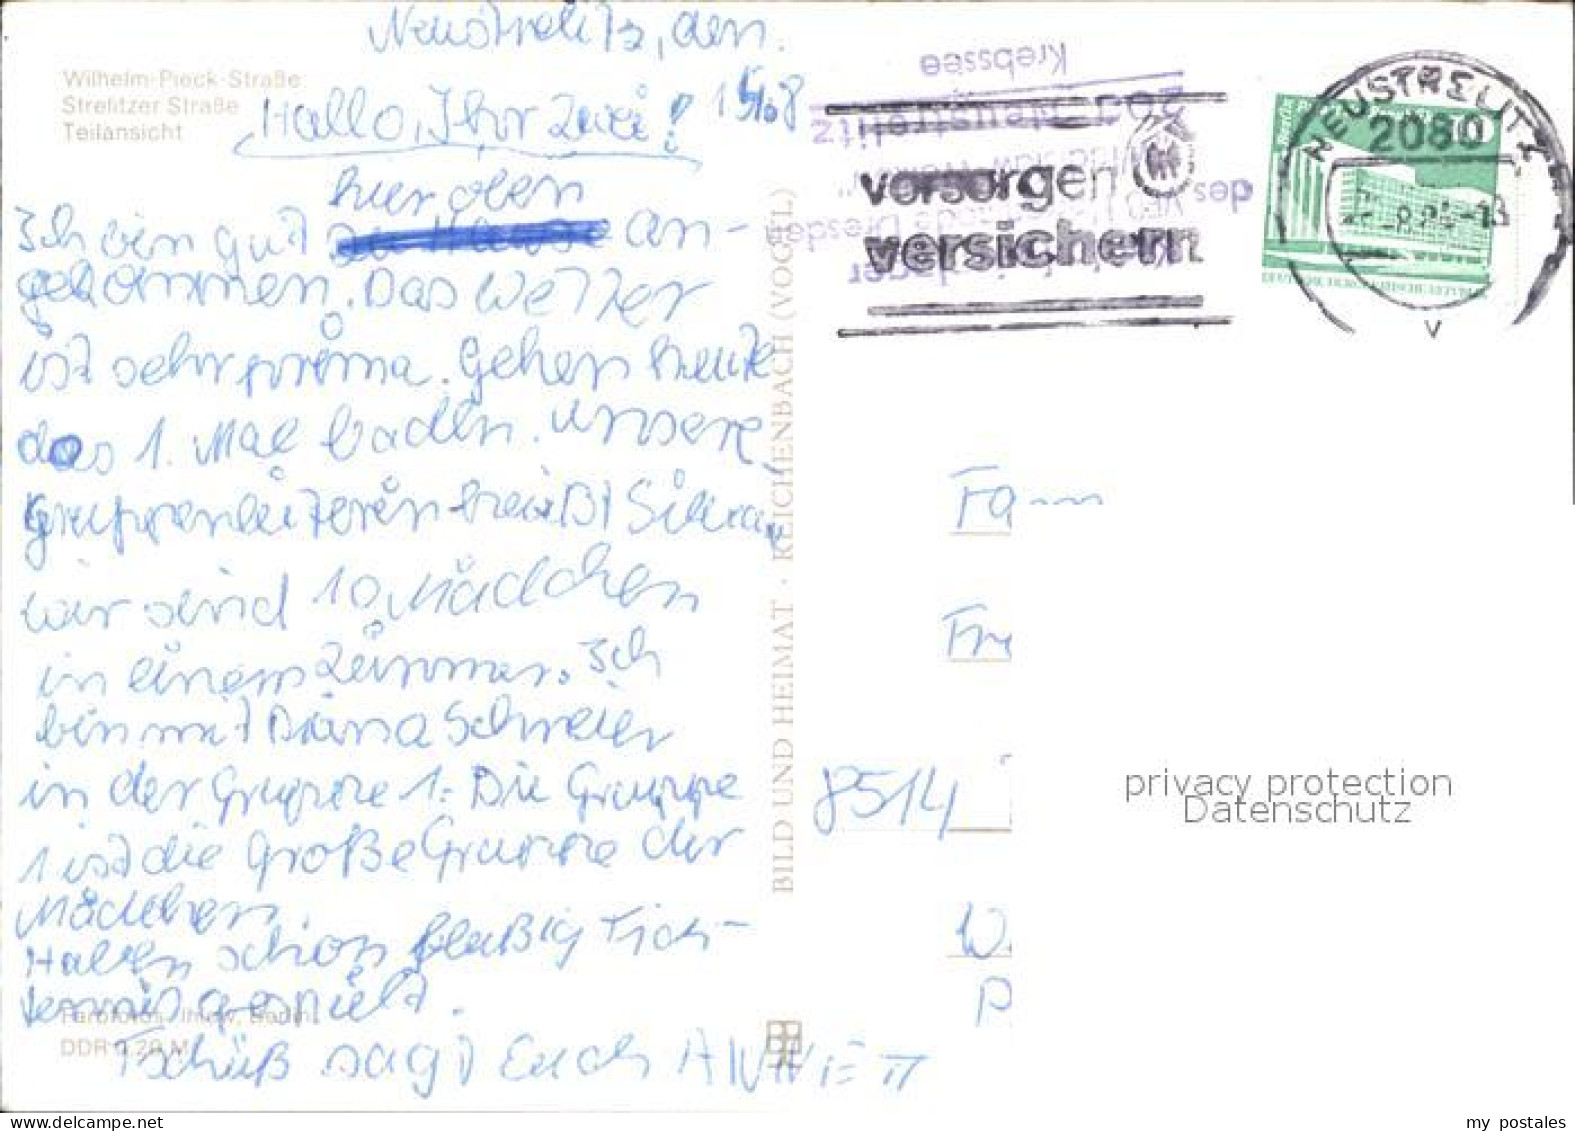 Neustrelitz, den
Wilhelm-Pieck-Straße
Strelitzer Straße
Teilansicht
Hallo, Ihr zwei!
hier oben
Ich bin gut an-
gekommen. Das Wetter
ist sehr prima. Gehen heute
das 1. Mal baden. Unsere
Gruppenleiterin heißt Silvia,
wir sind 10 Mädchen
in einem Zimmer. Ich
bin mit Diana Schneier
in der Gruppe 1. Die Gruppe
1 ist die Große Gruppe der
Mädchen.
Haben schon fleißig Tisch-
tennis gespielt.
Tschüß sagt Euch ANNETT
Farbfotos: Ihlow, Berlin
DDR 0,20 M
BILD UND HEIMAT · REICHENBACH (VOGEL)
Krebssee
208 Neustrelitz
des
vorsorgen
versichern
NEUSTRELITZ
2080
v
Fam
Fr
8514
W
P
privacy protection
Datenschutz
my postales